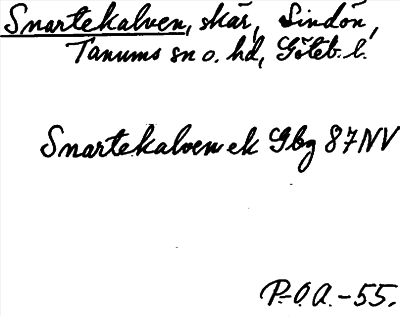 Snartekalven, skär, Lindön,
Tanums sn o. hd, Göteb. l.
Snartekalven ek Gbg 87NV
P.-O.A.-55.